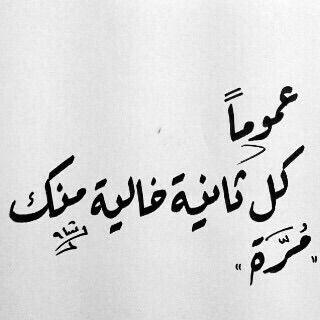 عموماً
كل ثانية خالية منك
"مُرَّة"